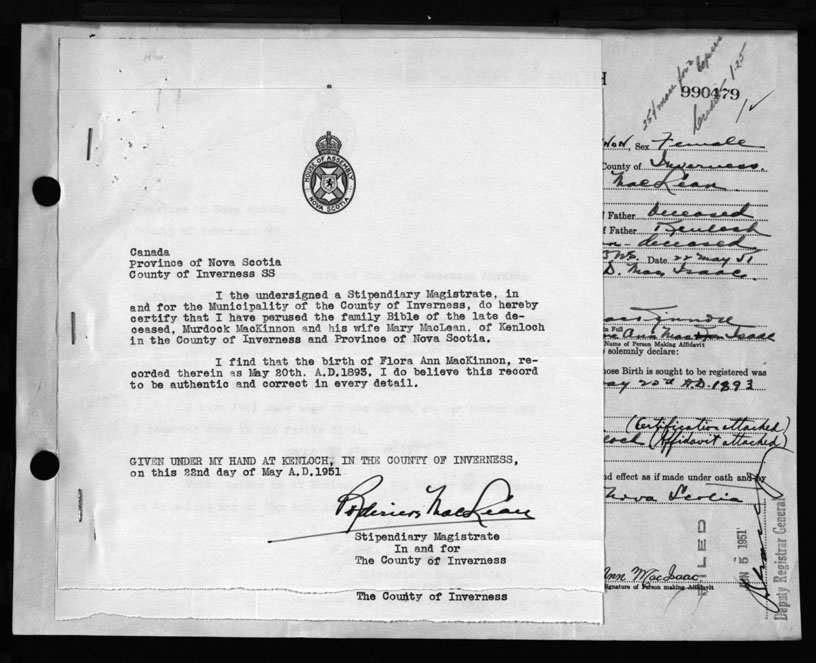 HOUSE OF ASSEMBLY
NOVA SCOTIA
Canada
Province of Nova Scotia
County of Inverness SS
I the undersigned a Stipendiary Magistrate, in
and for the Municipality of the County of Inverness, do hereby
certify that I have perused the family Bible of the late de-
ceased, Murdock MacKinnon and his wife Mary MacLean, of Kenloch
in the County of Inverness and Province of Nova Scotia.
I find that the birth of Flora Ann MacKinnon, re-
corded therein as May 20th. A.D,1893, I do believe this record
to be authentic and correct in every detail.
GIVEN UNDER MY HAND AT KENLOCH, IN THE COUNTY OF INVERNESS,
on this 22nd day of May A.D,1951
MacLean
Stipendiary Magistrate
In and for
The County of Inverness
The County of Inverness
H
990479
non, Sex Female
County of Inverness.
MacLean
f Father Deceased
f Father Kenloch
deceased
Date 22 May 51
D. MacIsaac
n Full
Ann
Name of Person Making Affidavit
solemnly declare:
ose Birth is sought to be registered was
ay 20th A.D. 1893
(Certification attached)
loch (Affidavit attached)
nd effect as if made under oath and by
Nova Scotia
FILED
N 5 1951
Ann MacIsaac
Signature of Person making Affidavit
Deputy Registrar General